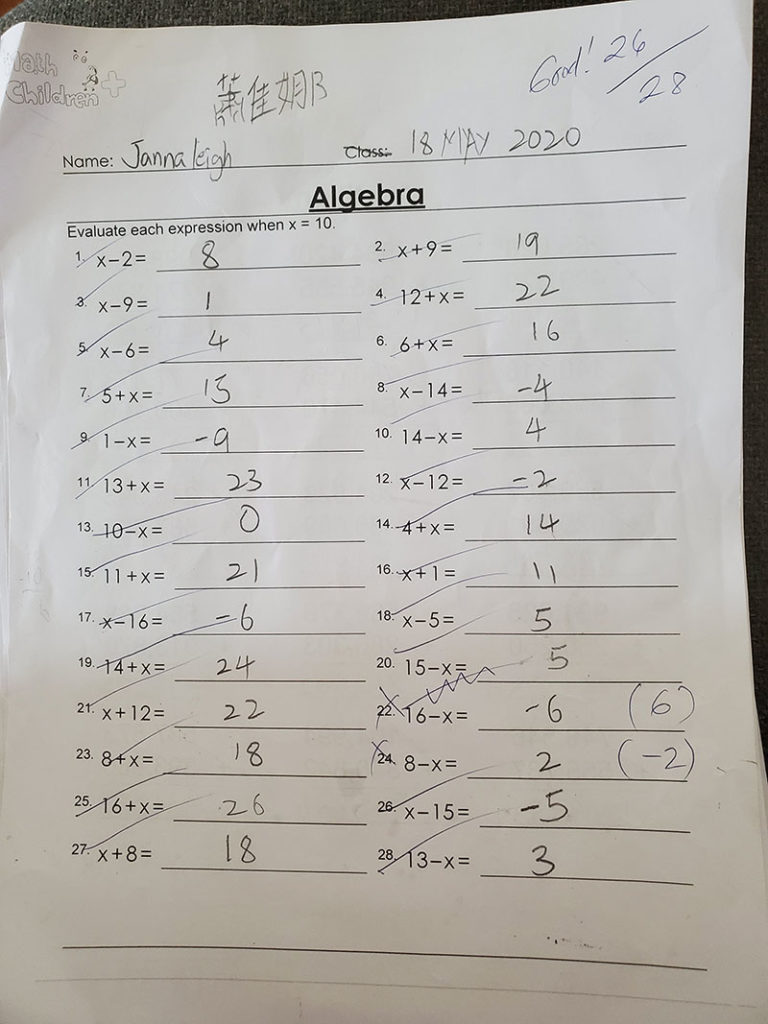 Math
Children+
蕭佳姐B
Good! 26/28
Name: Janna leigh Class: 18 MAY 2020
Algebra
Evaluate each expression when x = 10.
1. x−2= 8 2. x+9= 19
3. x−9= 1 4. 12+x= 22
5. x−6= 4 6. 6+x= 16
7. 5+x= 15 8. x−14= -4
9. 1−x= -9 10. 14−x= 4
11. 13+x= 23 12. x−12= -2
13. 10−x= 0 14. 4+x= 14
15. 11+x= 21 16. x+1= 11
17. x−16= -6 18. x−5= 5
19. 14+x= 24 20. 15−x= 5
21. x+12= 22 22. 16−x= -6 (6)
23. 8+x= 18 24. 8−x= 2 (-2)
25. 16+x= 26 26. x−15= -5
27. x+8= 18 28. 13−x= 3